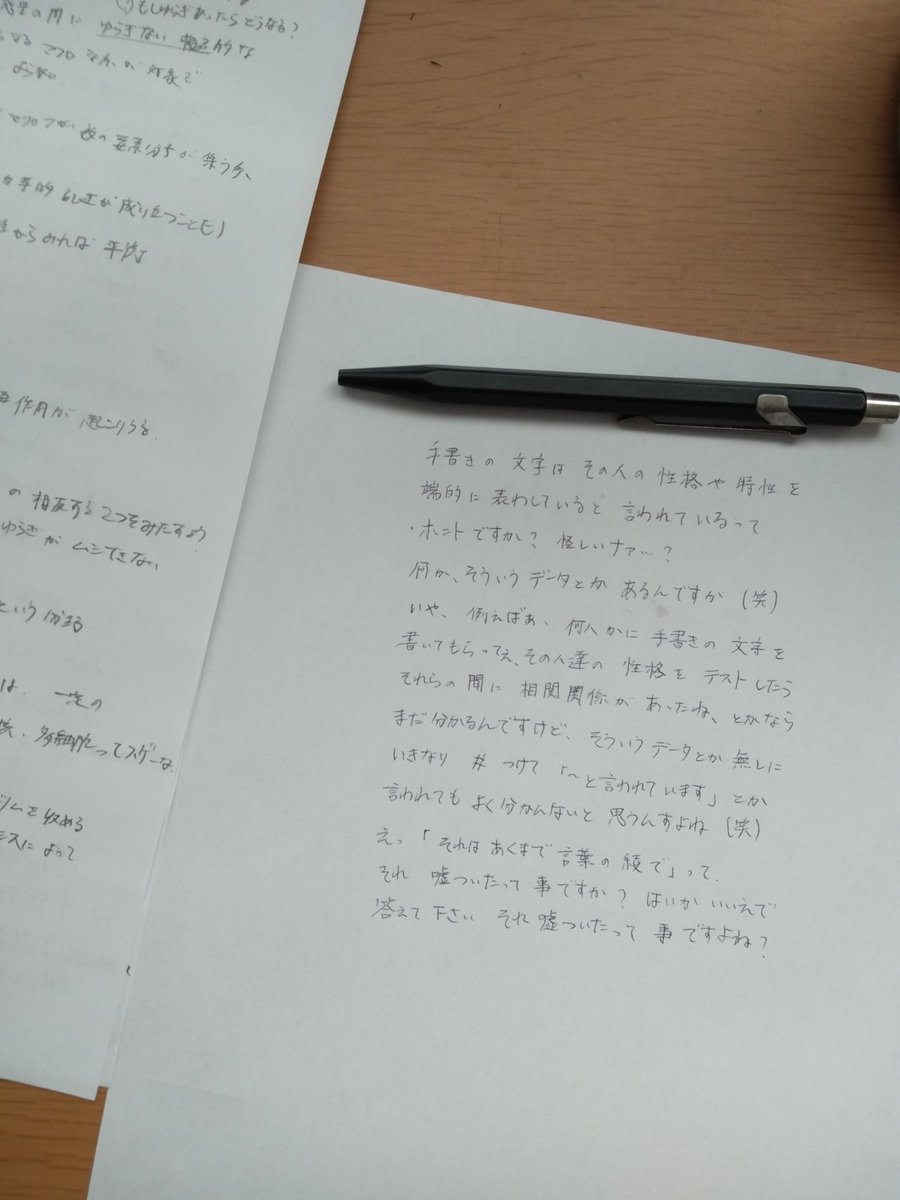 もしゆらぎあったらどうなる?
の間に ゆらぎない
なる マクロ
が 集う今、
が成り立つことも)
からみれば 平均
作用が 起こりうる
の 相反する 2つをみたすよう
ゆらぎ が ムシできない
という
は、一次の
多細胞ってスゲーな
ズムを 収める
によって
手書きの 文字は その人の 性格や 特性を
端的に 表わしていると 言われているって
・ホントですか? 怪しいナァ…?
何か、そういう データとか あるんですか (笑)
いや、例えばぁ、何人かに 手書きの 文字を
書いてもらってぇ、その人達の 性格を テストしたら
それらの間に 相関関係が あったね、とかなら
まだ分かるんですけど、そういうデータとか 無しに
いきなり # つけて 「~と言われています」とか
言われても よく分かんないと 思うんすよね (笑)
えっ 「それは あくまで 言葉の 綾で」って、
それ 嘘ついたって 事ですか? はいか いいえで
答えて 下さい それ嘘ついたって 事 ですよね?